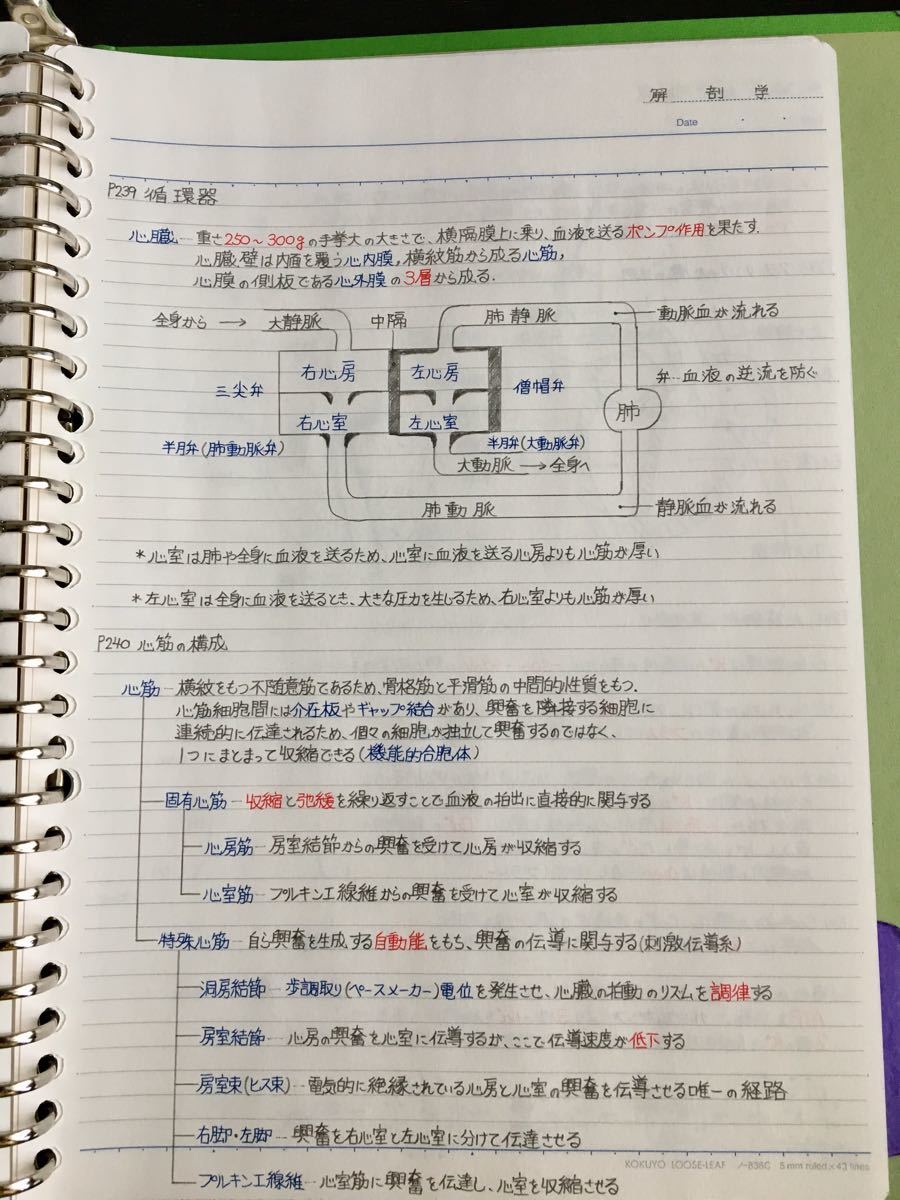 解 剖 学
Date
P239 循環器
心臓 — 重さ250〜300gの手拳大の大きさで、横隔膜上に乗り、血液を送るポンプ作用を果たす.
心臓壁は内面を覆う心内膜, 横紋筋から成る心筋,
心膜の側板である心外膜の3層から成る.
全身から → 大静脈 中隔 肺静脈 動脈血が流れる
右心房 左心房 弁 — 血液の逆流を防ぐ
三尖弁 僧帽弁
右心室 左心室 肺
半月弁(肺動脈弁) 半月弁(大動脈弁)
大動脈 → 全身へ
肺動脈 静脈血が流れる
* 心室は肺や全身に血液を送るため、心室に血液を送る心房よりも心筋が厚い
* 左心室は全身に血液を送るとき、大きな圧力を生じるため、右心室よりも心筋が厚い
P240 心筋の構成
心筋 — 横紋をもつ不随意筋であるため、骨格筋と平滑筋の中間的性質をもつ.
心筋細胞間には介在板やギャップ結合があり、興奮を隣接する細胞に
連続的に伝達されるため、個々の細胞が独立して興奮するのではなく、
1つにまとまって収縮できる(機能的合胞体)
固有心筋 — 収縮と弛緩を繰り返すことで血液の拍出に直接的に関与する
心房筋 — 房室結節からの興奮を受けて心房が収縮する
心室筋 — プルキンエ線維からの興奮を受けて心室が収縮する
特殊心筋 — 自ら興奮を生成する自動能をもち、興奮の伝導に関与する(刺激伝導系)
洞房結節 — 歩調取り(ペースメーカー)電位を発生させ、心臓の拍動のリズムを調律する
房室結節 — 心房の興奮を心室に伝導するが、ここで伝導速度が低下する
房室束(ヒス束) — 電気的に絶縁されている心房と心室の興奮を伝導させる唯一の経路
右脚・左脚 — 興奮を右心室と左心室に分けて伝達させる
KOKUYO LOOSE-LEAF ノ-836C 5 mm ruled×43 lines
プルキンエ線維 — 心室筋に興奮を伝達し、心室を収縮させる